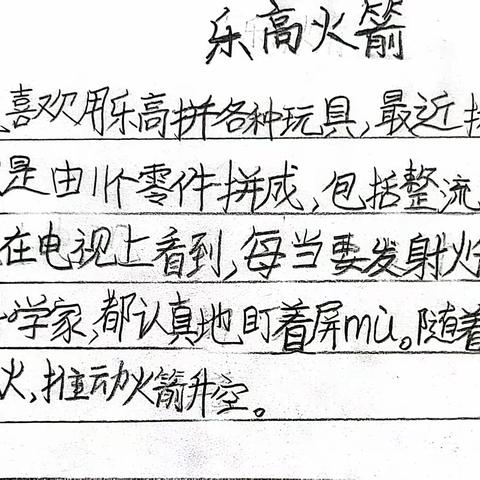 乐高火箭
喜欢用乐高拼各种玩具,最近
是由11个零件拼成,包括整流
在电视上看到,每当要发射火
学家,都认真地盯着屏mù。随着
火,推动火箭升空。